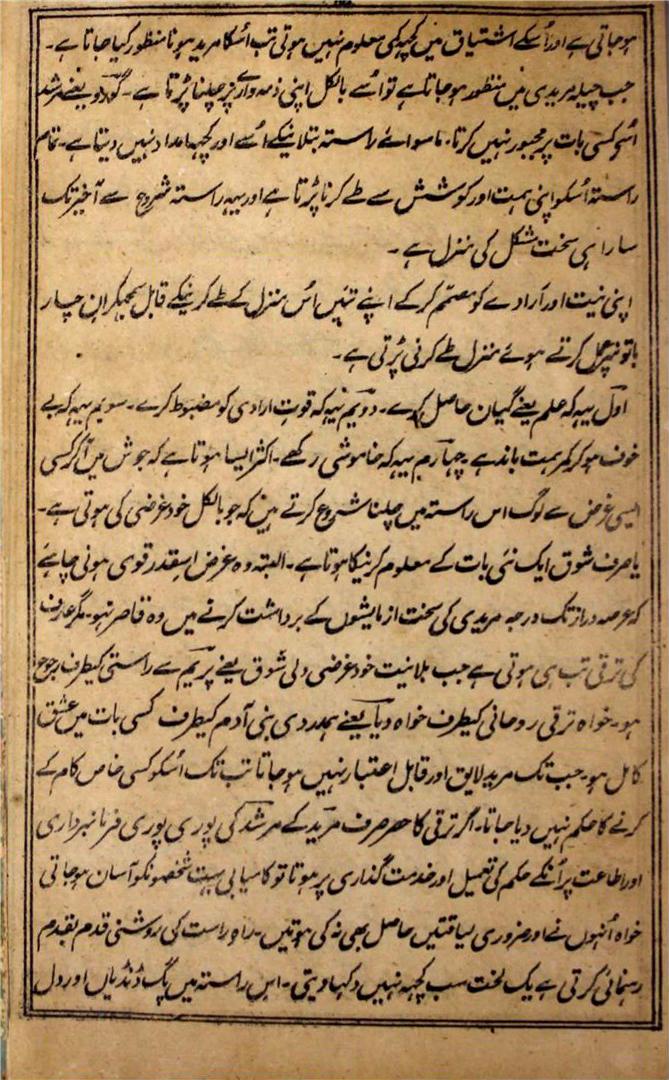 ہوجاتی ہے اور اُسکے اشتیاق میں کچھ کمی معلوم نہیں ہوتی تب اُسکا مرید ہونا منظور کیا جاتا ہے۔
جب چیلہ مریدی میں منظور ہوجاتا ہے تو اُسے بالکل اپنی ذمہ واری پر چلنا پڑتا ہے۔ گورو یعنے مرشد
اُسکو کسی بات پر مجبور نہیں کرتا۔ ماسواے راستہ بتلانیکے اُسے اور کچہہ امداد نہیں دیتا ہے۔ تمام
راستہ اُسکو اپنی ہمت اور کوشش سے طے کرنا پڑتا ہے اور یہہ راستہ شروع سے آخیر تک
سارا ہی سخت مشکل کی منزل ہے۔
اپنی نیت اور ارادے کو مصمم کرکے اپنے تئیں اُس منزل کے طے کرنیکے قابل سمجہکر ان چار
باتونپر عمل کرتے ہوئے منزل طے کرنی پڑتی ہے۔
اول یہہ کہ علم یعنے گیان حاصل کرے۔ دویم یہہ کہ قوت ارادی کو مضبوط کرے۔ سویم یہہ کہ بے
خوف ہوکر کمر ہمت باندہے۔ چہارم یہہ کہ خاموشی رکھے۔ اکثر ایسا ہوتا ہے کہ جوش میں آکر کسی
ایسی غرض سے لوگ اس راستہ میں چلنا شروع کرتے ہین کہ جو بالکل خودغرضی کی ہوتی ہے۔
یا صرف شوق ایک نئی بات کے معلوم کرنیکا ہوتا ہے۔ البتہ وہ غرض اسقدر قوی ہونی چاہئے
کہ عرصہ دراز تک درجہ مریدی کی سخت ازمایشوں کے برداشت کرنے میں وہ قاصر نہو۔ مگر عارف
کی ترقی تب ہی ہوتی ہے جب بلانیت خودغرضی دلی شوق یعنے پریم سے راستی کیطرف رجوع
ہو۔ خواہ ترقی روحانی کیطرف خواہ دیا یعنے ہمدردی بنی آدم کیطرف کسی بات میں عشق
کامل ہو۔ جب تک مرید لایق اور قابل اعتبار نہیں ہوجاتا تب تک اُسکو کسی خاص کام کے
کرنے کا حکم نہیں دیا جاتا۔ اگر ترقی کا حصر صرف مرید کے مرشد کی پوری پوری فرمانبرداری
اور اطاعت پر اُنکے حکم کی تعمیل اور خدمت گذاری پر ہوتا تو کامیابی بہت شخصونکو آسان ہوجاتی
خواہ اُنہوں نے اور ضروری لیاقتیں حاصل بھی نہ کی ہوتیں۔ راہ راست کی روشنی قدم بقدم
رہنمائی کرتی ہے یک لخت سب کچہہ نہیں دکہا دیتی۔ اس راستہ میں پگ ڈنڈیاں اور دل